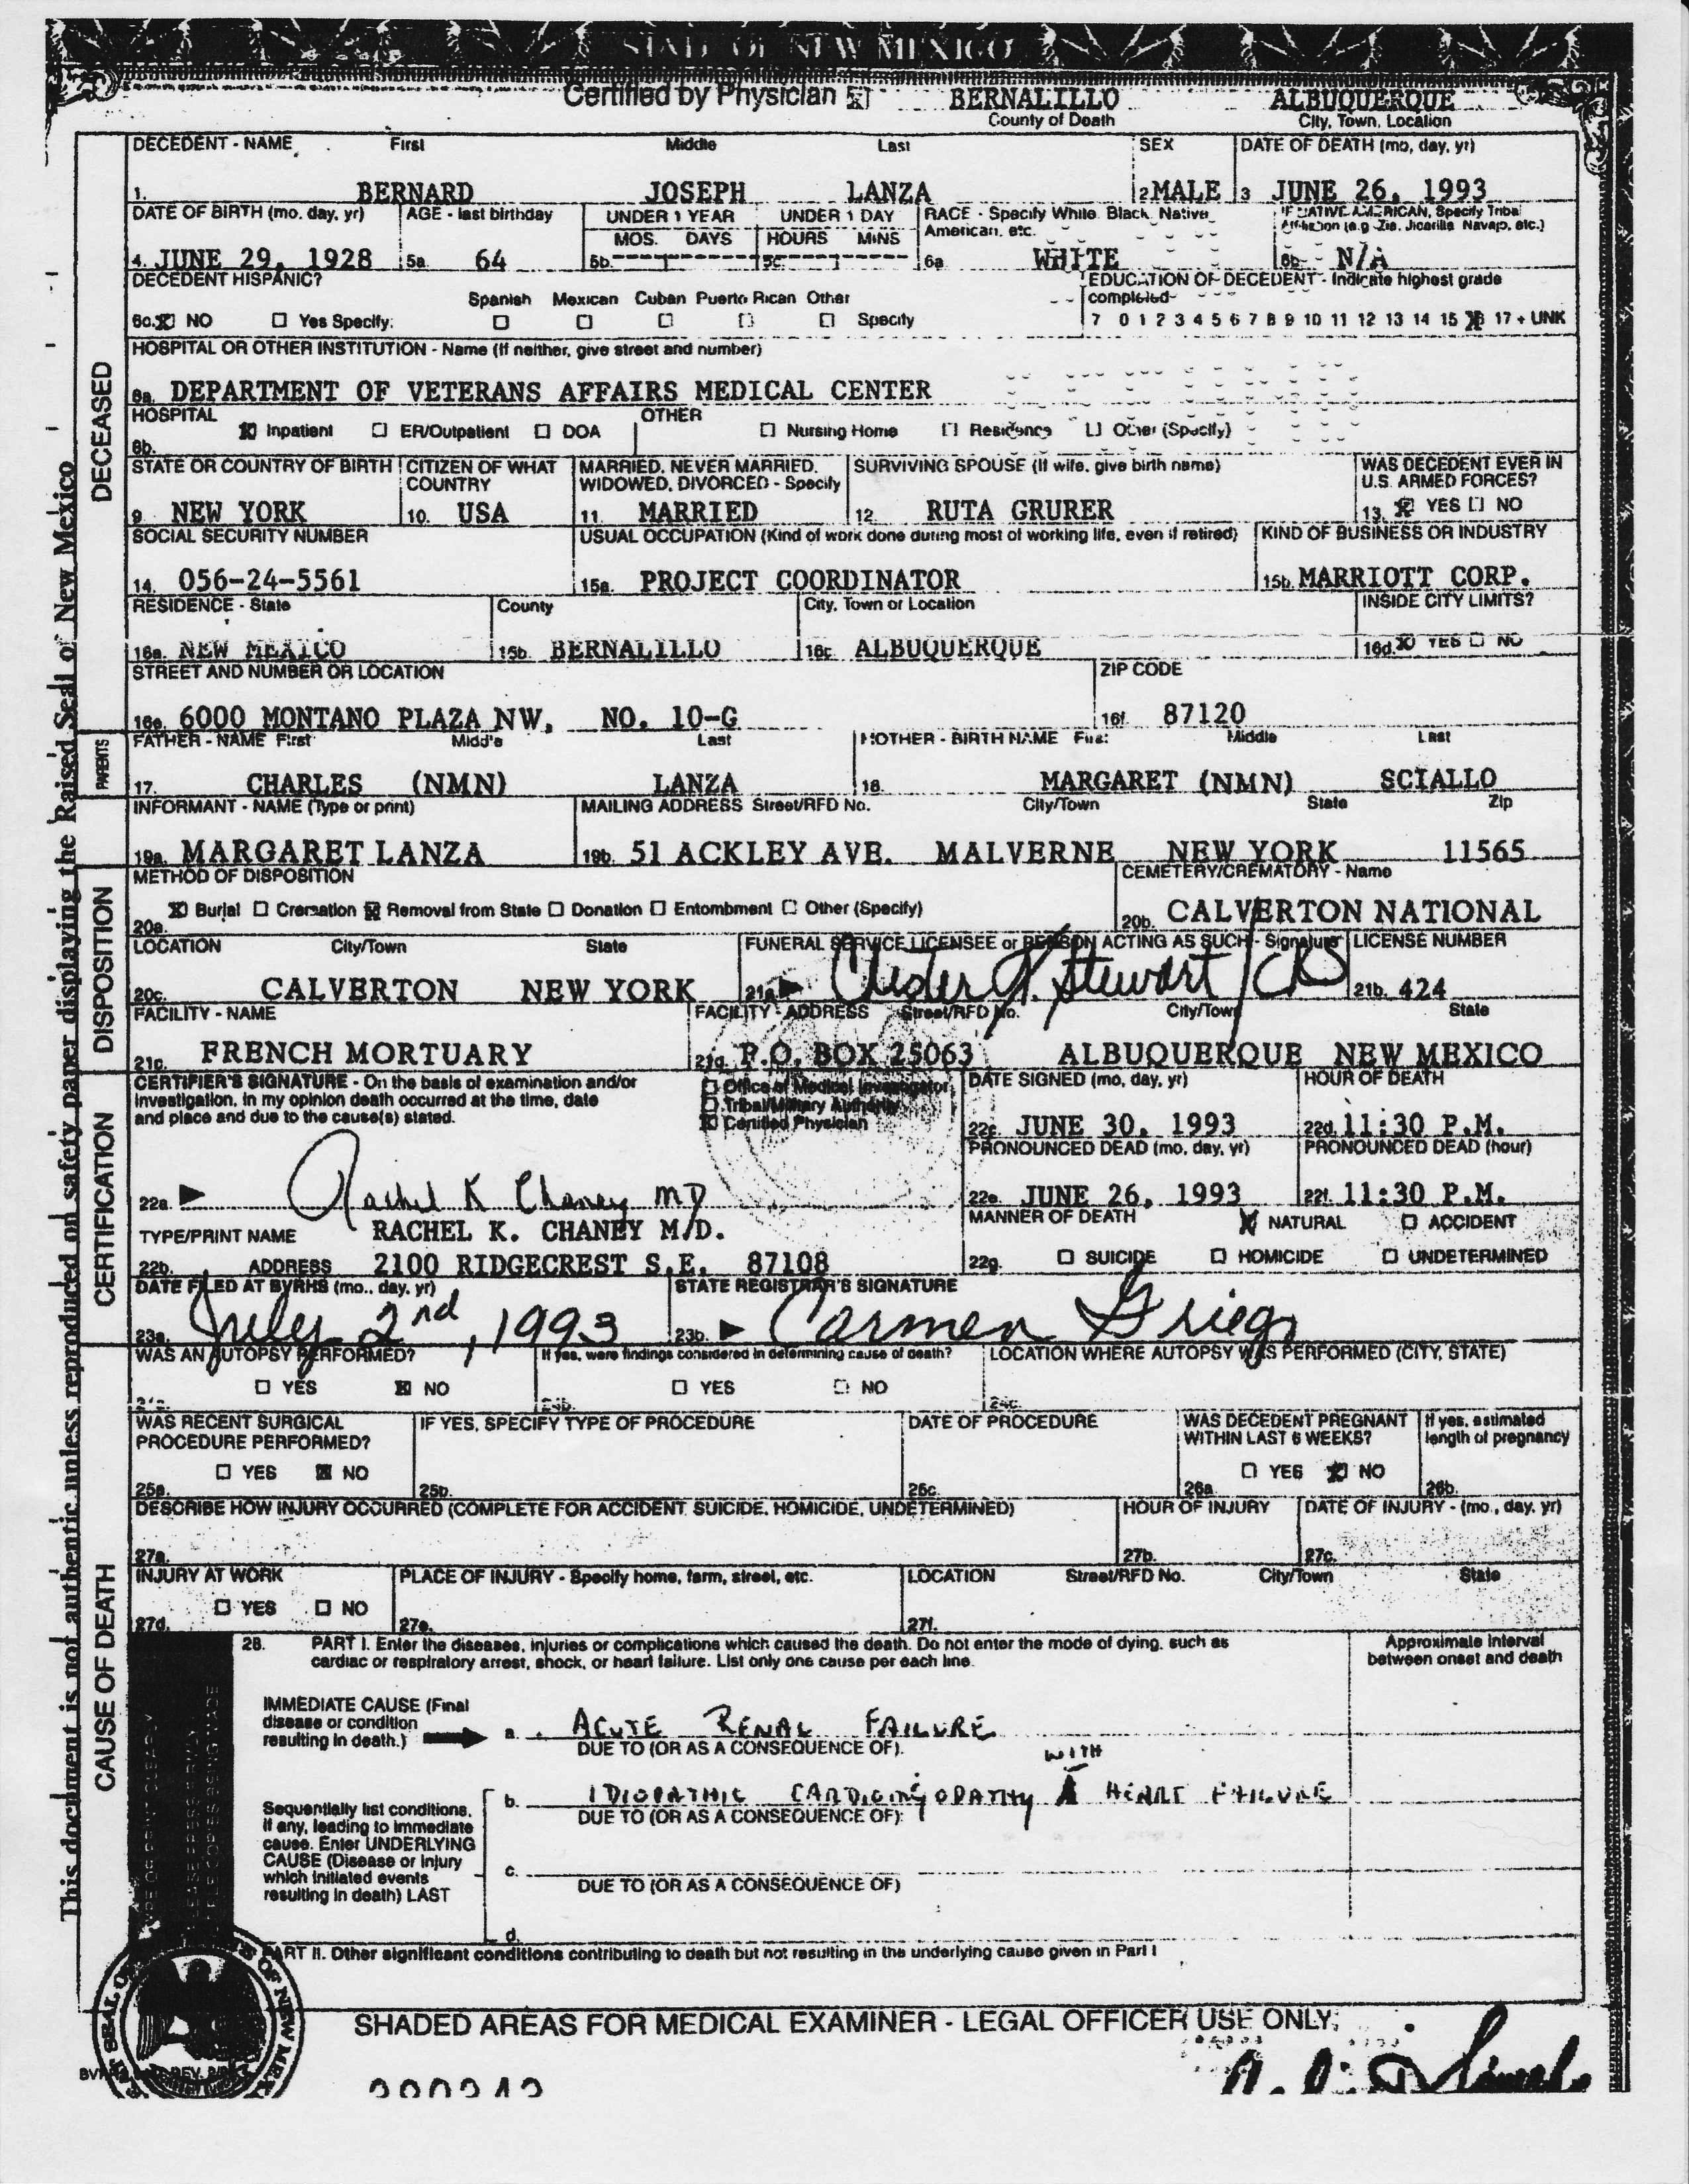 STATE OF NEW MEXICO
Certified by Physician ☒ BERNALILLO ALBUQUERQUE
County of Death City, Town, Location
DECEDENT - NAME First Middle Last SEX DATE OF DEATH (mo, day, yr)
1. BERNARD JOSEPH LANZA 2 MALE 3 JUNE 26, 1993
DATE OF BIRTH (mo. day, yr) AGE - last birthday UNDER 1 YEAR UNDER 1 DAY RACE - Specify White, Black, Native American, etc. IF NATIVE AMERICAN, Specify Tribal Affiliation (e.g. Zia, Jicarilla Navajo, etc.)
MOS. DAYS HOURS MINS
4. JUNE 29, 1928 5a. 64 5b. 5c. 6a WHITE 6b N/A
DECEDENT HISPANIC? EDUCATION OF DECEDENT - Indicate highest grade completed
Spanish Mexican Cuban Puerto Rican Other
6c. ☒ NO ☐ Yes Specify: ☐ ☐ ☐ ☐ ☐ Specify 7 0 1 2 3 4 5 6 7 8 9 10 11 12 13 14 15 16 17 + UNK
HOSPITAL OR OTHER INSTITUTION - Name (If neither, give street and number)
8a. DEPARTMENT OF VETERANS AFFAIRS MEDICAL CENTER
HOSPITAL OTHER
8b. ☒ Inpatient ☐ ER/Outpatient ☐ DOA ☐ Nursing Home ☐ Residence ☐ Other (Specify)
STATE OR COUNTRY OF BIRTH CITIZEN OF WHAT COUNTRY MARRIED, NEVER MARRIED, WIDOWED, DIVORCED - Specify SURVIVING SPOUSE (If wife, give birth name) WAS DECEDENT EVER IN U.S. ARMED FORCES?
9. NEW YORK 10. USA 11. MARRIED 12. RUTA GRURER 13. ☒ YES ☐ NO
SOCIAL SECURITY NUMBER USUAL OCCUPATION (Kind of work done during most of working life, even if retired) KIND OF BUSINESS OR INDUSTRY
14. 056-24-5561 15a. PROJECT COORDINATOR 15b. MARRIOTT CORP.
RESIDENCE - State County City, Town or Location INSIDE CITY LIMITS?
16a. NEW MEXICO 16b. BERNALILLO 16c. ALBUQUERQUE 16d. ☒ YES ☐ NO
STREET AND NUMBER OR LOCATION ZIP CODE
16e. 6000 MONTANO PLAZA NW, NO. 10-G 16f. 87120
FATHER - NAME First Middle Last MOTHER - BIRTH NAME First Middle Last
17. CHARLES (NMN) LANZA 18. MARGARET (NMN) SCIALLO
INFORMANT - NAME (Type or print) MAILING ADDRESS Street/RFD No. City/Town State Zip
19a. MARGARET LANZA 19b. 51 ACKLEY AVE. MALVERNE NEW YORK 11565
METHOD OF DISPOSITION CEMETERY/CREMATORY - Name
20a. ☒ Burial ☐ Cremation ☒ Removal from State ☐ Donation ☐ Entombment ☐ Other (Specify) 20b. CALVERTON NATIONAL
LOCATION City/Town State FUNERAL SERVICE LICENSEE or PERSON ACTING AS SUCH - Signature LICENSE NUMBER
20c. CALVERTON NEW YORK 21a. Stewart 21b. 424
FACILITY - NAME FACILITY - ADDRESS Street/RFD No. City/Town State
21c. FRENCH MORTUARY 21d. P.O. BOX 25063 ALBUQUERQUE NEW MEXICO
CERTIFIER'S SIGNATURE - On the basis of examination and/or investigation, in my opinion death occurred at the time, date and place and due to the cause(s) stated.
☐ Office of Medical Investigator
☐ Tribal/Military Authority
☒ Certified Physician
DATE SIGNED (mo, day, yr) HOUR OF DEATH
22c. JUNE 30, 1993 22d. 11:30 P.M.
PRONOUNCED DEAD (mo, day, yr) PRONOUNCED DEAD (hour)
22a. Rachel K Chaney MD 22e. JUNE 26, 1993 22f. 11:30 P.M.
TYPE/PRINT NAME RACHEL K. CHANEY M.D. MANNER OF DEATH ☒ NATURAL ☐ ACCIDENT
22b. ADDRESS 2100 RIDGECREST S.E. 87108 22g. ☐ SUICIDE ☐ HOMICIDE ☐ UNDETERMINED
DATE FILED AT BVRHS (mo., day, yr) STATE REGISTRAR'S SIGNATURE
23a. July 2nd, 1993 23b. Carmen Griego
WAS AN AUTOPSY PERFORMED? If yes, were findings considered in determining cause of death? LOCATION WHERE AUTOPSY WAS PERFORMED (CITY, STATE)
☐ YES ☒ NO 24b. ☐ YES ☐ NO 24c.
WAS RECENT SURGICAL PROCEDURE PERFORMED? IF YES, SPECIFY TYPE OF PROCEDURE DATE OF PROCEDURE WAS DECEDENT PREGNANT WITHIN LAST 6 WEEKS? If yes, estimated length of pregnancy
25a. ☐ YES ☒ NO 25b. 25c. 26a ☐ YES ☒ NO 26b.
DESCRIBE HOW INJURY OCCURRED (COMPLETE FOR ACCIDENT, SUICIDE, HOMICIDE, UNDETERMINED) HOUR OF INJURY DATE OF INJURY - (mo., day, yr)
27a. 27b. 27c.
INJURY AT WORK PLACE OF INJURY - Specify home, farm, street, etc. LOCATION Street/RFD No. City/Town State
27d. ☐ YES ☐ NO 27e. 27f.
28. PART I. Enter the diseases, injuries or complications which caused the death. Do not enter the mode of dying, such as cardiac or respiratory arrest, shock, or heart failure. List only one cause per each line. Approximate interval between onset and death
IMMEDIATE CAUSE (Final disease or condition resulting in death.) a. ACUTE RENAL FAILURE
DUE TO (OR AS A CONSEQUENCE OF).
WITH
b. IDIOPATHIC CARDIOMYOPATHY HEART FAILURE
DUE TO (OR AS A CONSEQUENCE OF):
Sequentially list conditions, if any, leading to immediate cause. Enter UNDERLYING CAUSE (Disease or injury which initiated events resulting in death) LAST
c.
DUE TO (OR AS A CONSEQUENCE OF)
d.
PART II. Other significant conditions contributing to death but not resulting in the underlying cause given in Part I
SHADED AREAS FOR MEDICAL EXAMINER - LEGAL OFFICER USE ONLY.
DECEASED
PARENTS
DISPOSITION
CERTIFICATION
CAUSE OF DEATH
This document is not authentic unless reproduced on safety paper displaying the Raised Seal of New Mexico